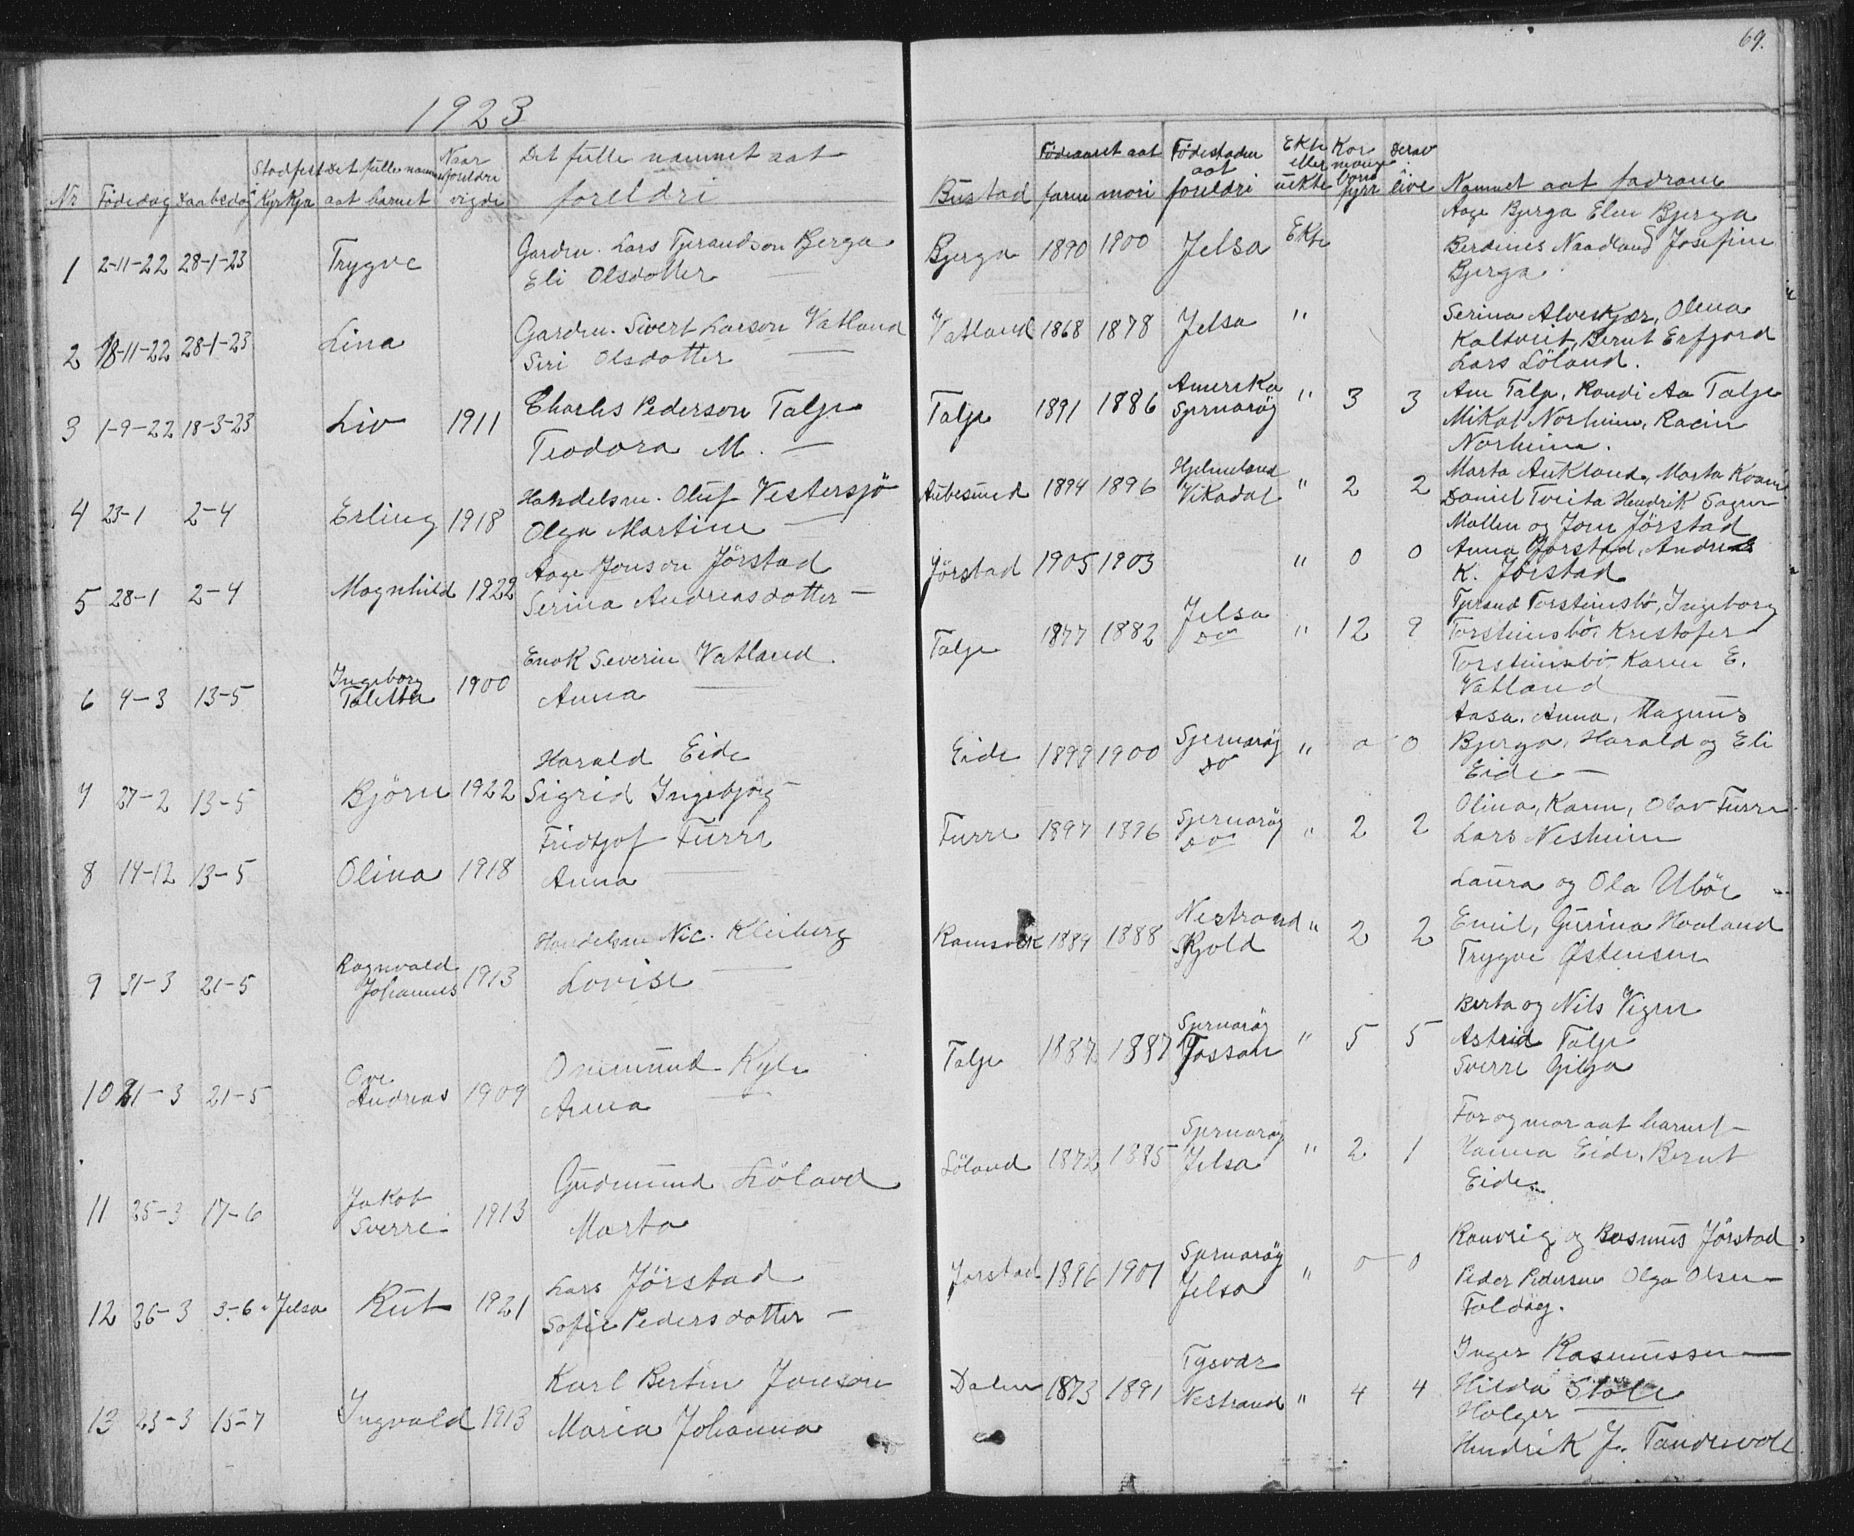 69.
1923
Nr Födedag Daabsdag Stadfest Kyrkja Det fulle namnet aat barnet Naar foreldri vigde Det fulle namnet aat foreldri
Bustad Födeaaret aat faren mori Födestaden aat foreldri Ekte eller uekte Kor mange born fyrr Derav i live Namnet aat fadrane
1 2-11-22 28-1-23 Trygve Gardm. Lars Tjerandson Bjerga
Eli Olsdotter —
Bjerga 1890 1900 Jelsa Ekte
Aage Bjerga Elen Bjerga
Berdines Naadland Josefine
Bjerga.
2 18-11-22 28-1-23 Lina Gardm. Sivert Larson Vatland
Siri Olsdotter —
Vatland 1868 1878 Jelsa "
Serina Alveskjær, Olena
Kaltveit, Bernt Erfjord
Lars Löland.
3 1-9-22 18-3-23 Liv 1911 Charles Pederson Talje
Teodora M. —
Talje 1891 1886 Amerika
Sjernaröy " 3 3
Am Talje, Randi Aa Talje
Mikal Norheim, Racin
Norheim.
4 23-1 2-4 Erling 1918 Handelsm. Oluf Vestersjö
Olga Martine —
Aubesund 1894 1896 Hjelmeland
Vikadal " 2 2
Marta Aukland, Marta Kvam
Daniel Tveita Hendrik Sagen
5 28-1 2-4 Magnhild 1922 Aage Jonson Jörstad
Serina Andreasdotter —
Jörstad 1905 1903 " 0 0
Mallin og Jom Jörstad
Anna Jorstad, Andreas
K. Jörstad
6 4-3 13-5 Ingeborg
Taletta 1900 Enok Severin Vatland
Anna —
Talje 1877 1882 Jelsa
do " 12 9
Tjerand Torsteinsbö, Ingeborg
Torsteinsbö, Kristofer
Torsteinsbö Karen E.
Vatland
7 27-2 13-5 Björn 1922 Harald Eide
Sigrid Ingebjörg —
Eide 1899 1900 Sjernaröy
do " 0 0
Aasa, Anna, Magnus
Bjerga, Harald og Eli
Eide —
8 14-12 13-5 Olina 1918 Fridtjof Furre
Anna —
Furre 1897 1896 Sjernaröy
do " 2 2
Olina, Karen, Olav Furre
Lars Nesheim
9 31-3 21-5 Ragnvald
Johannes 1913 Handelsm Nic. Kleiberg
Lovise —
Ramsvik 1889 1888 Nestrand
Skjold " 2 2
Laura og Ola Ulöe
Emil, Gurina Hovland
Trygve Østensen
10 21-3 21-5 Ove
Andreas 1909 Ommund Kyle
Anna —
Talje 1887 1887 Sjernaröy
Fossan " 5 5
Berta og Nils Vigen
Astrid Talje
Sverre Gilja
11 25-3 17-6 Jakob
Sverre 1913 Gudmund Löland
Marta
Löland 1872 1885 Sjernaröy
Jelsa " 2 1
Far og mor aat barnet —
Hanna Eide, Bernt
Eide
12 26-3 3-6 Jelsa Rut 1921 Lars Jörstad
Sofie Pedersdotter —
Jorstad 1896 1901 Sjernaröy
Jelsa " 0 0
Ranveig og Rasmus Jörstad
Peder Pedersen Olga Olsen —
Foldöy.
13 23-3 15-7 Ingvald 1913 Karl Bertin Jonson
Maria Johanna
Dalen 1873 1891 Tysvær
Nestrand " 4 4
Inger Rasmussen —
Hilda Stöle
Holger
Hendrik J. Tandevoll